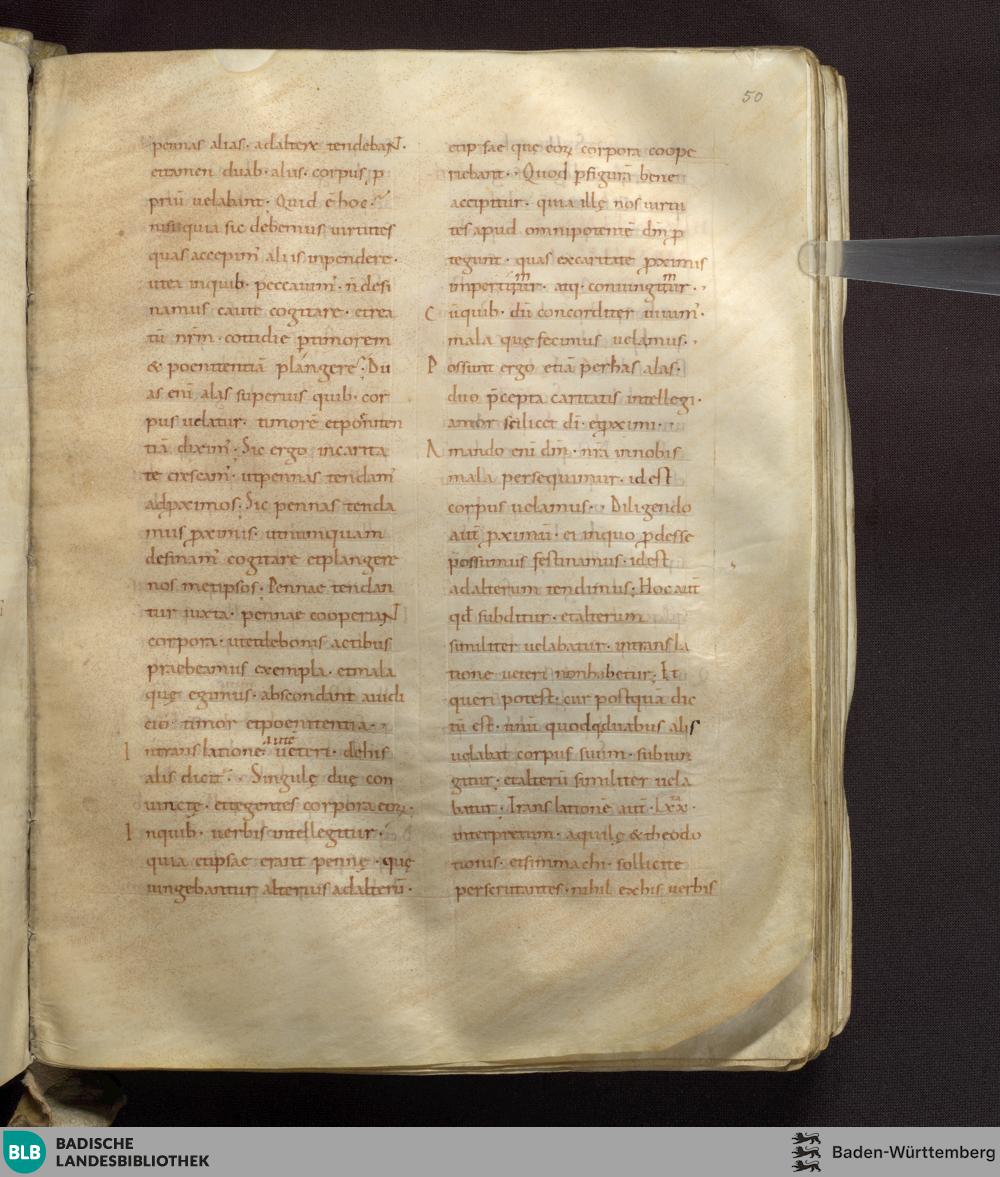 50
pennas alias· ad altera tendebant·
et tamen duab· aliis· corpus p
priū uelabant· Quid ē hoc·
nisi quia sic debemus uirtutes
quas accepim' aliis inpendere·
ut ea in quib· peccauim'· n̄ desi
namus caute cogitare· et rea
tū nr̄m· cottidie p timorem
& poenitentiā plangere; Du
as eni alas superius quib· cor
pus uelatur· timorē et poeniten
tiā dixim'· Sic ergo in carita
te crescam'· ut pennas tendam'
ad pximos; Sic pennas tenda
mus pximis· ut numquam
desinam' cogitare et plangere
nos metipsos· Pennae tendan
tur iuxta· pennae cooperiant
corpora· ut et de bonis actibus
praebeamus exempla· et mala
quę egimus· abscondant a iudi
cio· timor et poenitentia·
In translatione aute ueteri· de his
alis dicit'· Singulę duę con
iunctę· et tegentes corpora eorꝝ·
In quib· uerbis intellegitur·
quia et ipsae erant pennę· quę
iungebantur alterius ad alterū·
et ip sae quę eorꝝ corpora coope
riebant· Quod p figurā bene
accipitur· quia illę nos uirtu
tes apud omnipotentē dm̄ p
tegunt· quas ex caritate pximis
impertimur· atq· coniungimur·
Cū quib· dū concorditer uiuim'·
mala quę fecimus uelamus·
Possunt ergo etiā per has alas·
duo p̄cepta caritatis intellegi·
amor scilicet dī· et pximi·
Amando eni dm̄· nr̄a in nobis
mala persequimur· id est
corpus uelamus· Diligendo
aut̄ pximū· ei in quo p desse
possumus festinamus· id est
ad alterum tendimus; Hoc aut̄
qd̄ subditur· et alterum
similiter uelabatur· in transla
tione ueteri non habetur; Et
queri potest· cur postquā dic
tū est· unū quodq duabus alis
uelabat corpus suum· subiun
gitur· et alterū similiter uela
batur· Translationē aut̄· Lxx·
interpretum· aquilę & theodo
tionis· et simmachi· sollicite
perscrutantes· nihil ex his uerbis
BLB
BADISCHE
LANDESBIBLIOTHEK
Baden-Württemberg